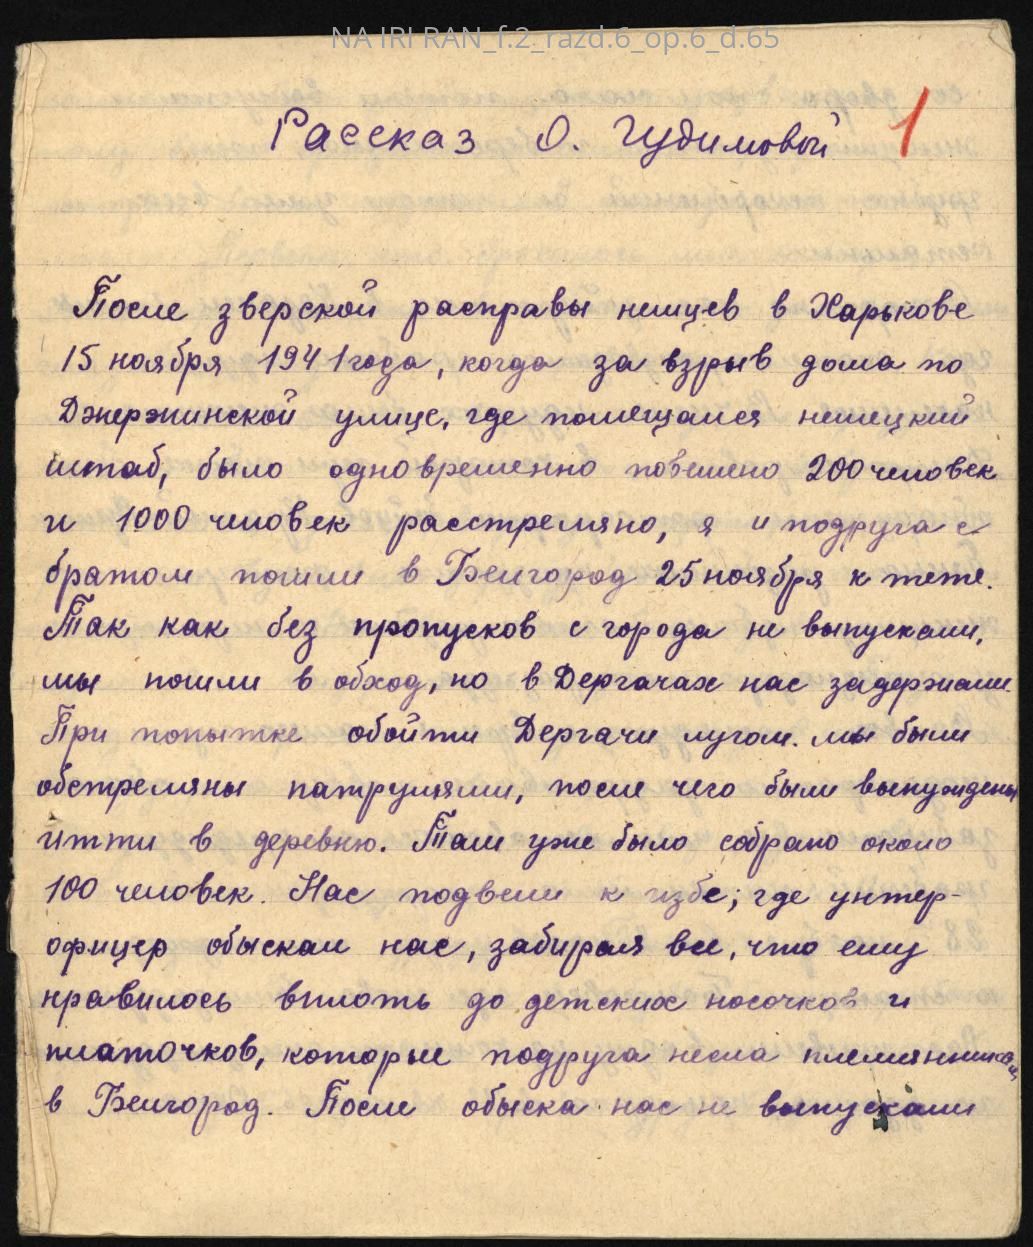 NA IRI RAN_f.2_razd.6_op.6_d.65
Рассказ О. Гудимовой 1
После зверской расправы немцев в Харькове
15 ноября 1941 года, когда за взрыв дома по
Дзержинской улице, где помещался немецкий
штаб, было одновременно повешено 200 человек
и 1000 человек расстреляно, я и подруга с
братом пошли в Белгород 25 ноября к тете.
Так как без пропусков с города не выпускали,
мы пошли в обход, но в Дергачах нас задержали.
При попытке обойти Дергачи лугом. мы были
обстреляны патрулями, после чего были вынуждены
итти в деревню. Там уже было собрано около
100 человек. Нас подвели к избе; где унтер-
офицер обыскал нас, забирая все, что ему
нравилось вплоть до детских носочков и
платочков, которые подруга несла племянникам
в Белгород. После обыска нас не выпускали